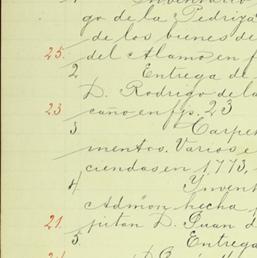 1 Inventario
go de la Pedriza
de los bienes de
25. del Alamo en f
2 Entrega de
D. Rodrigo de la
23 caño en fjs. 23
3. Carpe
mentos. Varios e
ciendas en 1773,
4. Ynvent
Admon hecha p
21. pitan D. Juan d
5. Entrega